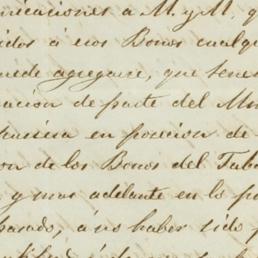 nicaciones a M. y M, q
idos á esos Bonos cualqu
uede agregarse, que tene
uacion de parte del Min
hubiera en poseion de
on de los Bonos del Taba
y mas adelante en lo p
barado, á no haber sido p